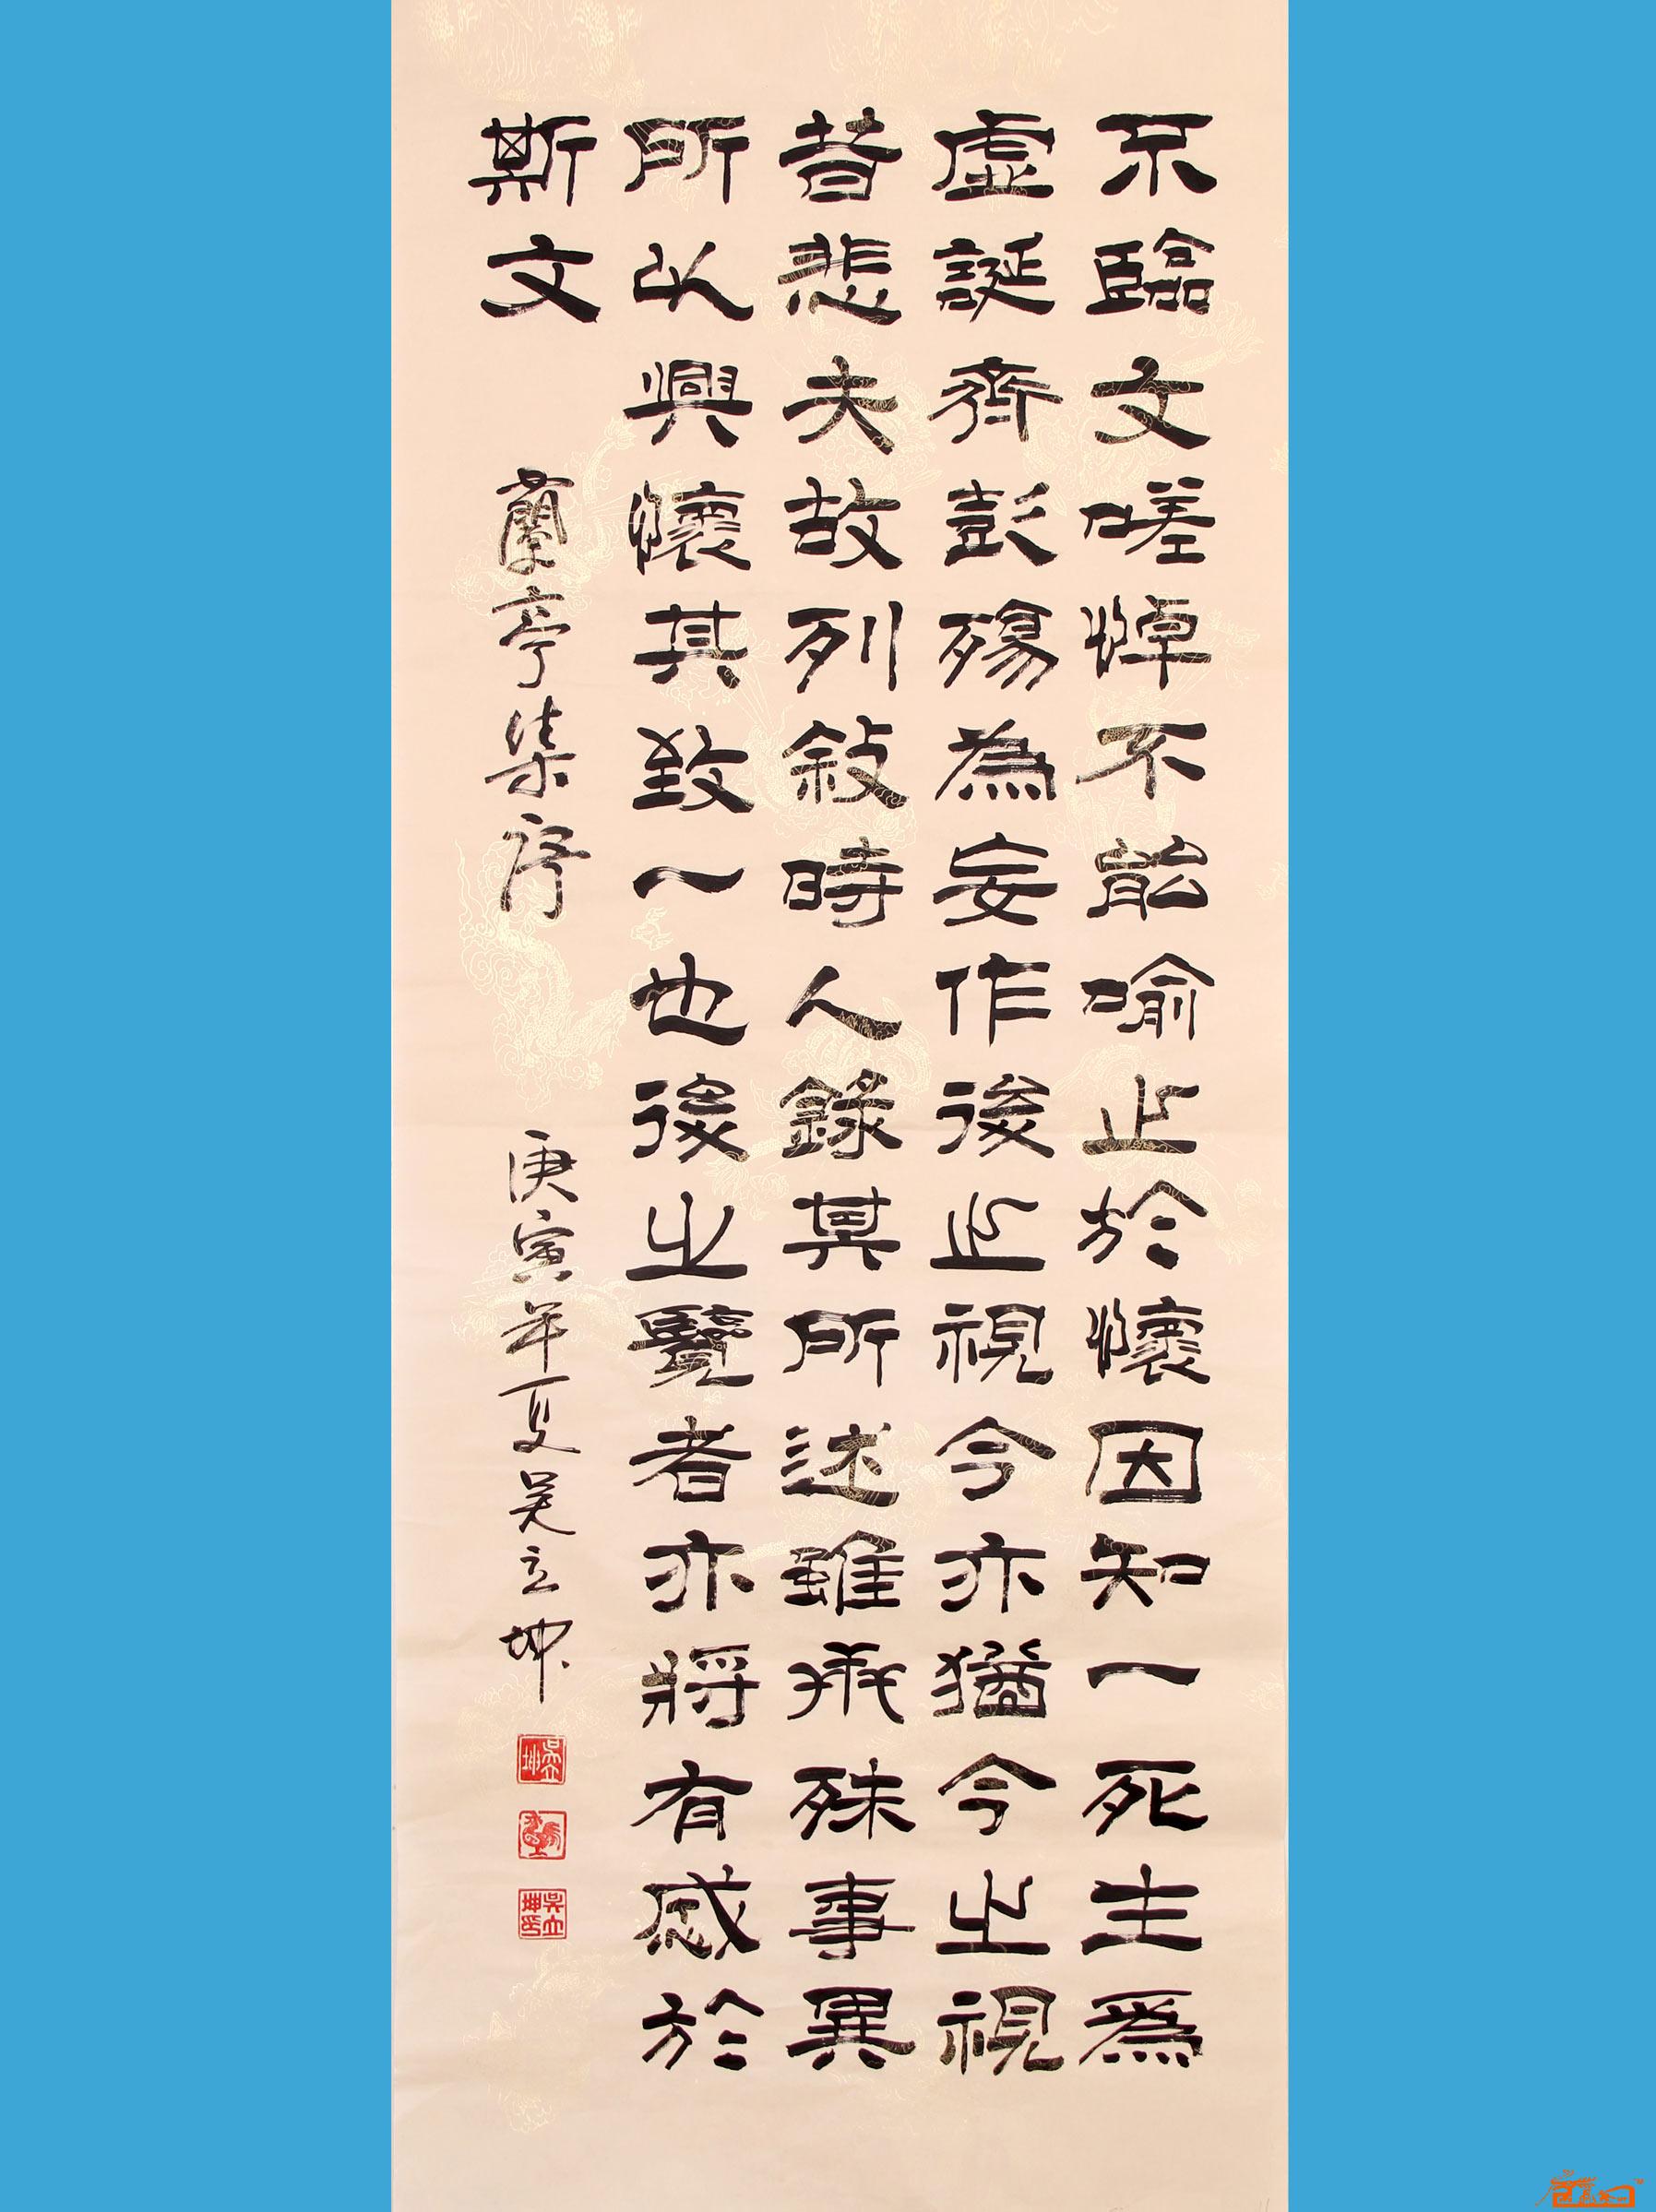 不臨文嗟悼不能喻之於懷因知一死生為
虛誕齊彭殤為妄作後之視今亦猶今之視
昔悲夫故列敘時人錄其所述雖世殊事異
所以興懷其致一也後之覽者亦將有感於
斯文
蘭亭集序
庚寅年夏吳立坤
吳立坤
吳立坤印